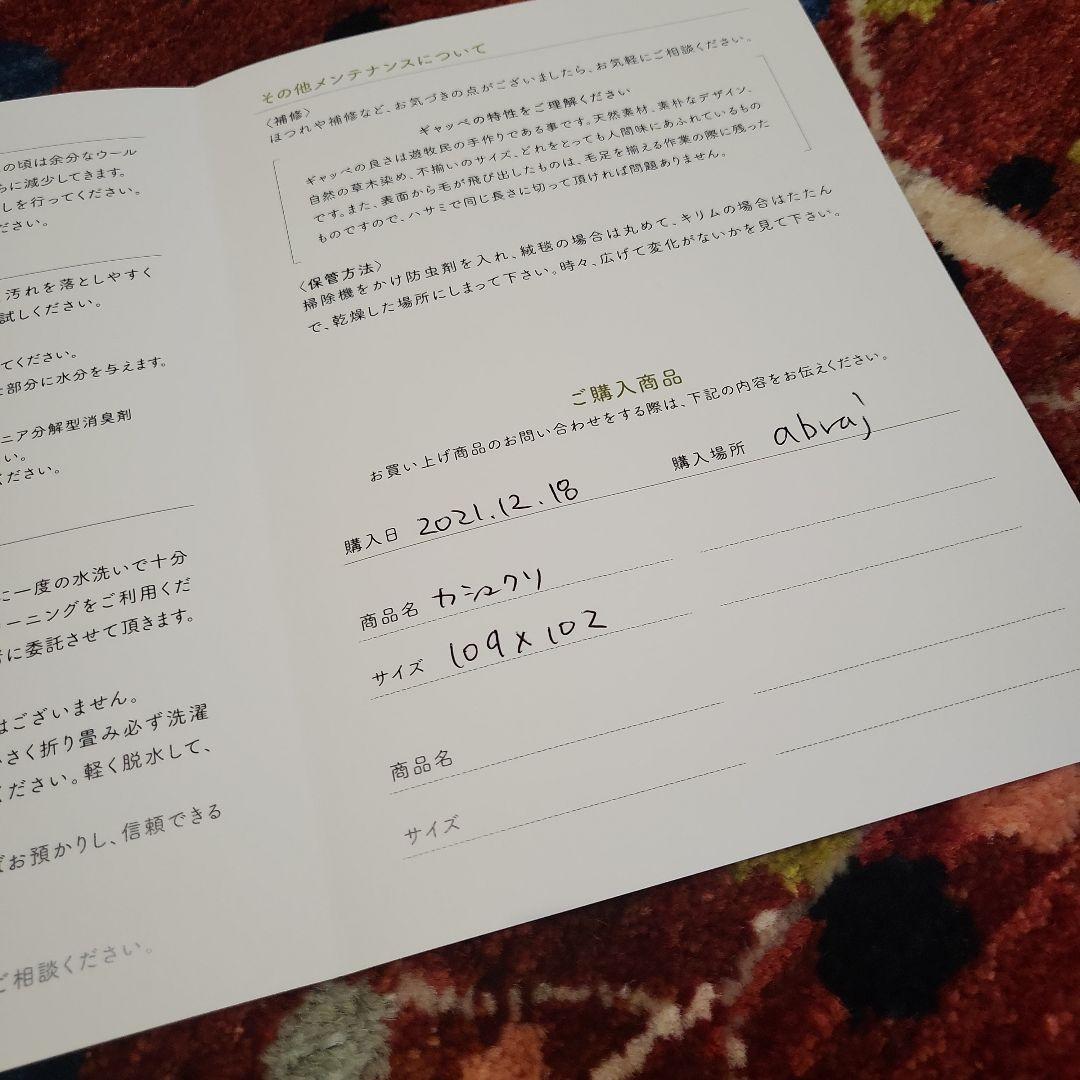 の頃は余分なウール
らに減少してきます。
しを行ってください。
ださい。
汚れを落としやすく
試しください。
てください。
部分に水分を与えます。
ニア分解型消臭剤
い。
ください。
に一度の水洗いで十分
ーニングをご利用くだ
に委託させて頂きます。
はございません。
さく折り畳み必ず洗濯
ください。軽く脱水して、
お預かりし、信頼できる
ご相談ください。
その他メンテナンスについて
〈補修〉
ほつれや補修など、お気づきの点がございましたら、お気軽にご相談ください。
ギャッベの特性をご理解ください
ギャッベの良さは遊牧民の手作りである事です。天然素材、素朴なデザイン、
自然の草木染め、不揃いのサイズ、どれをとっても人間味にあふれているもの
です。また、表面から毛が飛び出したものは、毛足を揃える作業の際に残った
ものですので、ハサミで同じ長さに切って頂ければ問題ありません。
〈保管方法〉
掃除機をかけ防虫剤を入れ、絨毯の場合は丸めて、キリムの場合はたたん
で、乾燥した場所にしまって下さい。時々、広げて変化がないかを見て下さい。
ご購入商品
お買い上げ商品のお問い合わせをする際は、下記の内容をお伝えください。
購入日 2021.12.18 購入場所 abraj
商品名 カシュクリ
サイズ 109×102
商品名
サイズ